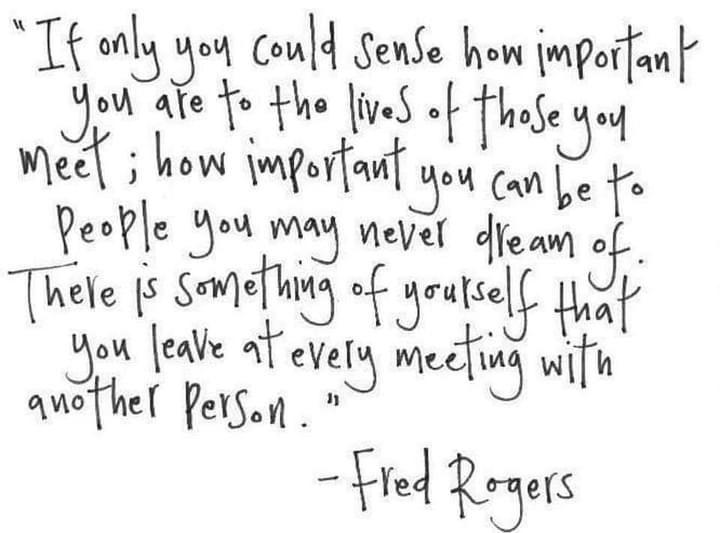 "If only you could sense how important
you are to the lives of those you
meet; how important you can be to
people you may never dream of.
There is something of yourself that
you leave at every meeting with
another person."
-Fred Rogers